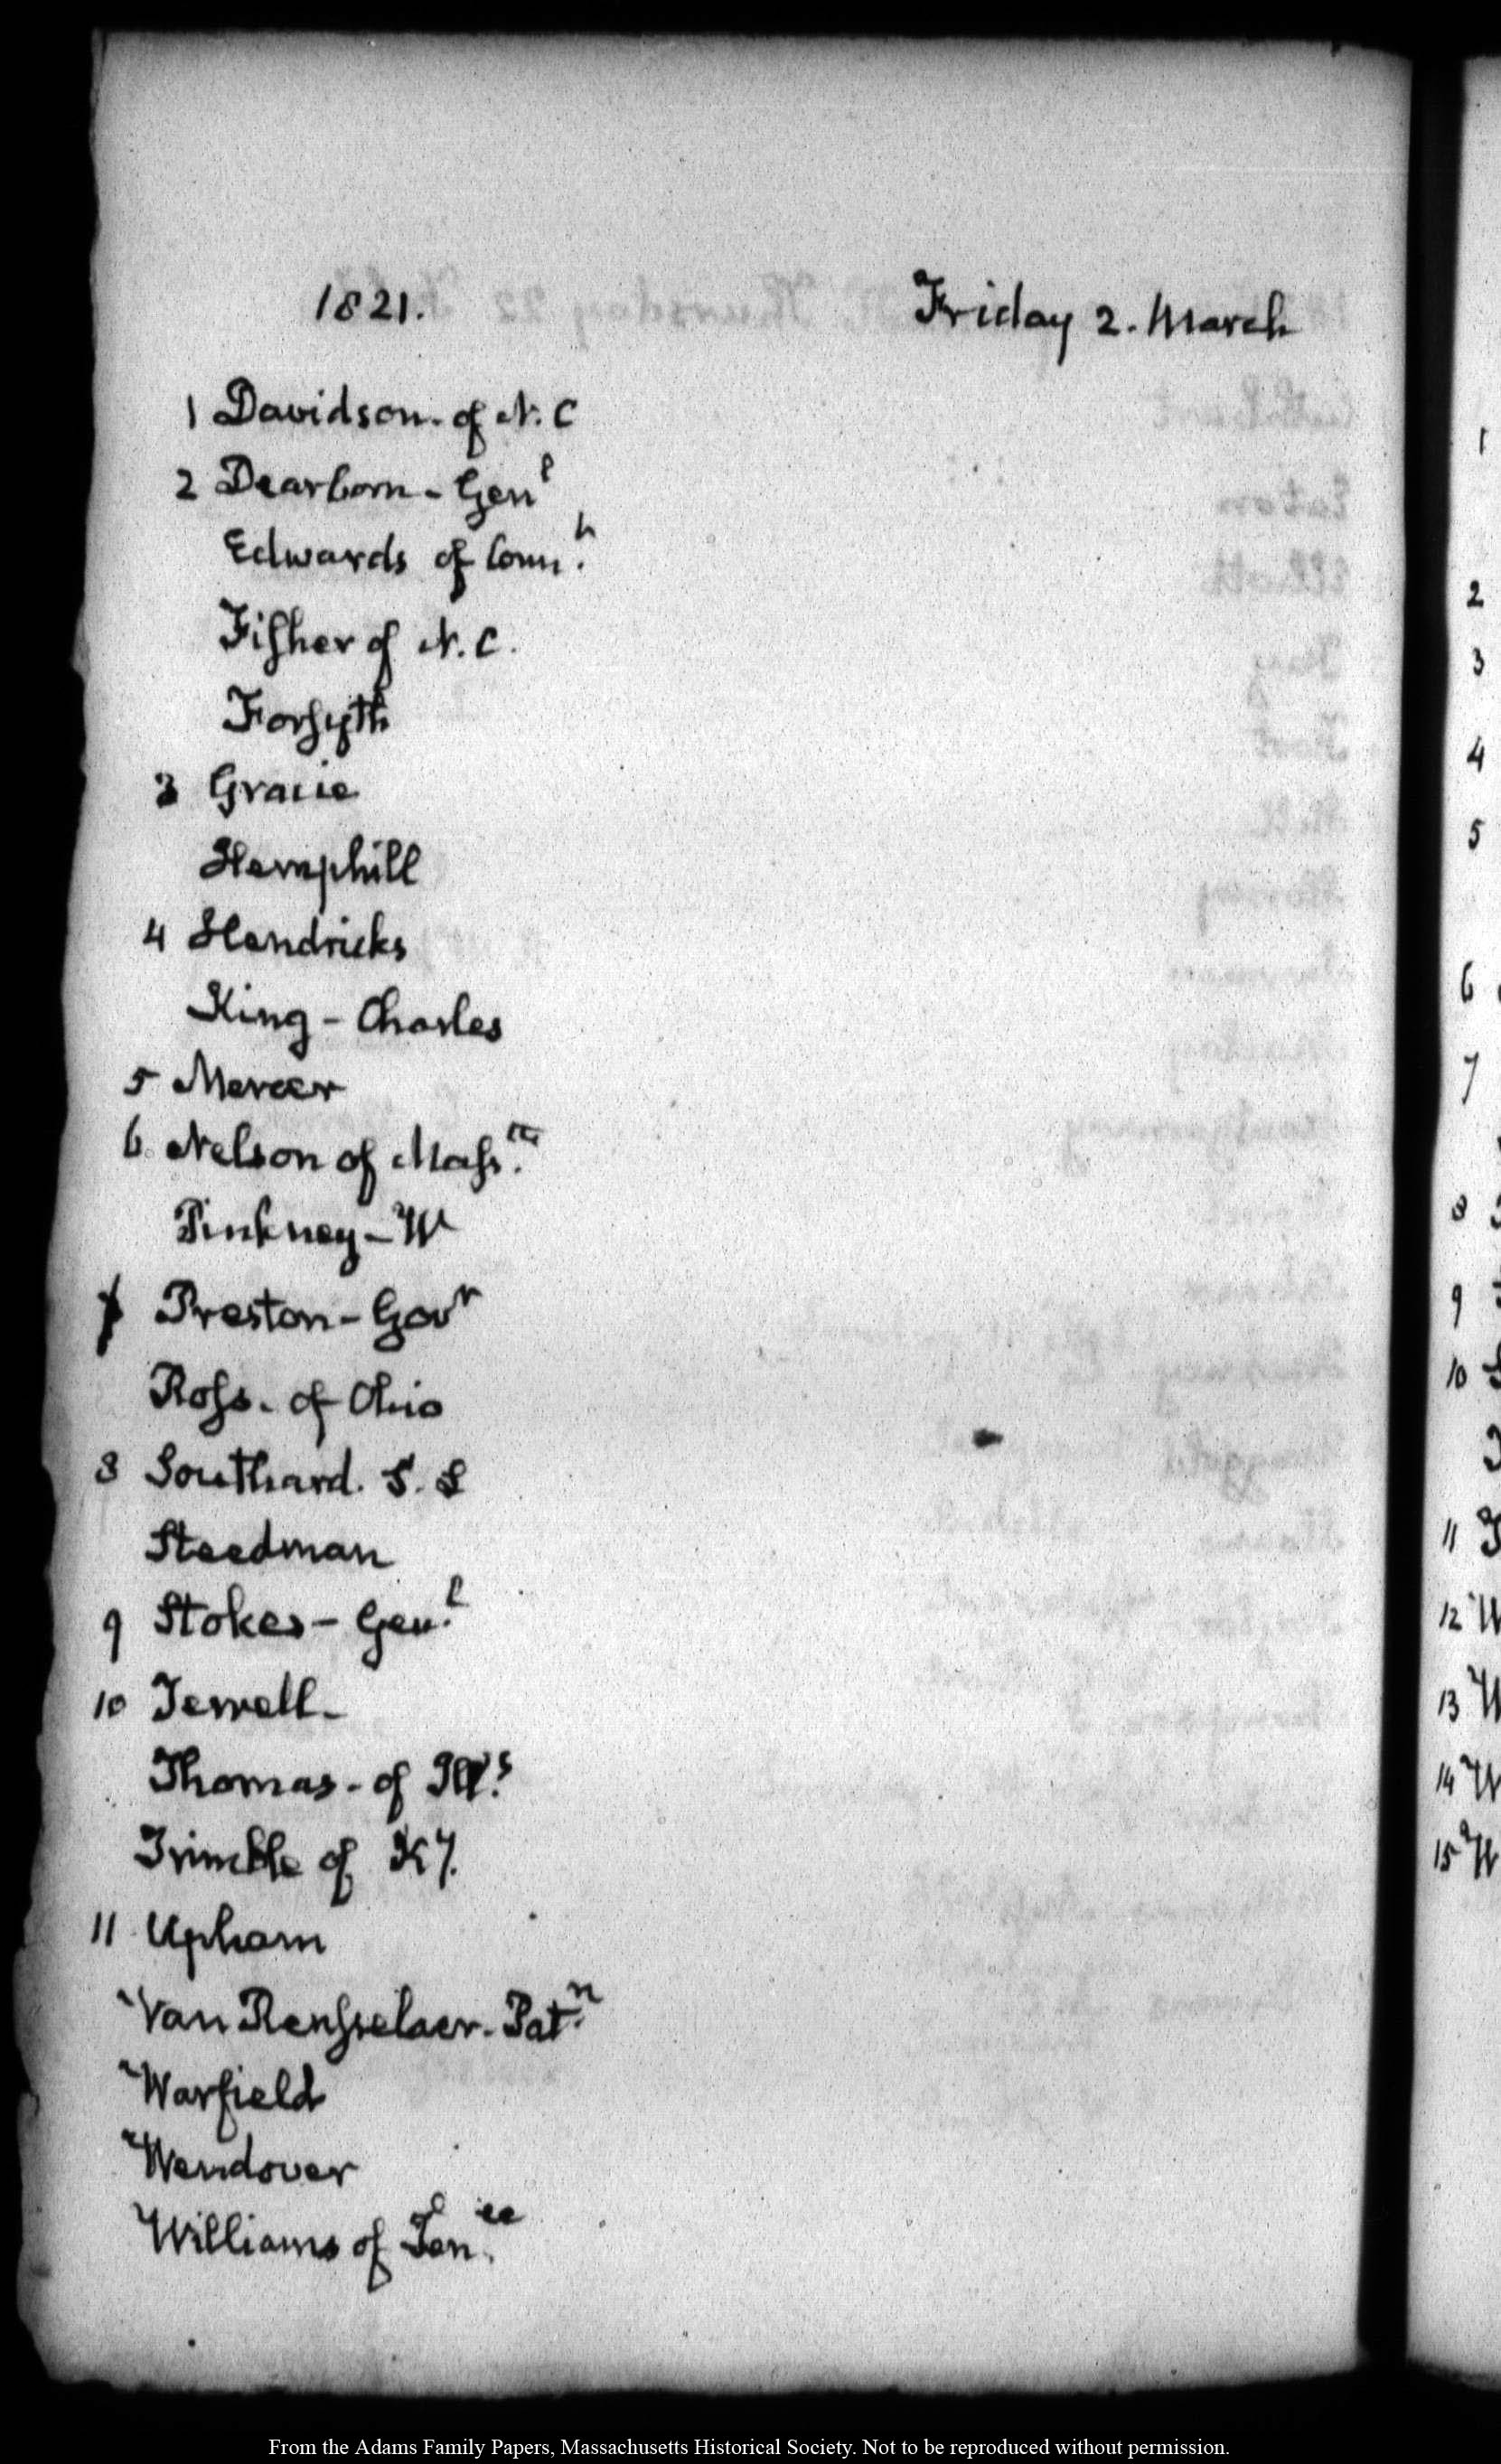 1821. Friday 2. March
1 Davidson. of N. C
2 Dearborn - Genl
Edwards of Conn.t
Fisher of N. C.
Forsyth
3 Gracie
Hemphill
4 Hendricks
King - Charles
5 Mercer
6 Nelson of Mass.tts
Pinkney - W
7 Preston - Govr
Ross. of Ohio
8 Southard. S. L
Steedman
9 Stokes - Gen.l
10 Terrell -
Thomas - of Ill.s
Trimble of Ky.
11 Upham
Van Rensselaer. Pat.n
Warfield
Wendover
Williams of Ten.ee
1
2
3
4
5
6
7
8
9
10
11
12 W
13 W
14 W
15 W
From the Adams Family Papers, Massachusetts Historical Society. Not to be reproduced without permission.